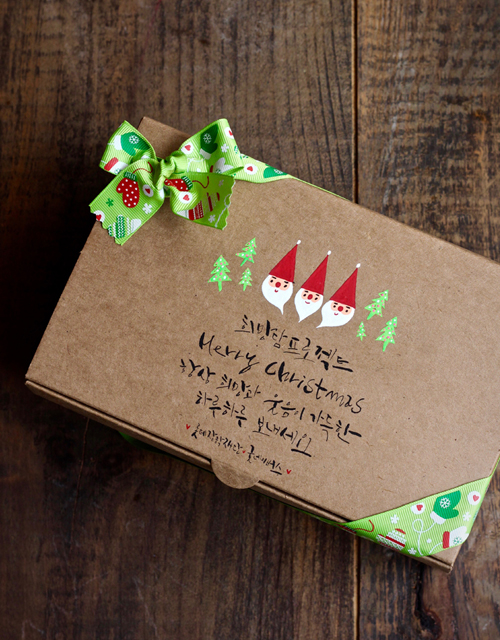 희망담프로젝트
Merry Christmas
항상 희망과 웃음이 가득한
하루하루 보내세요